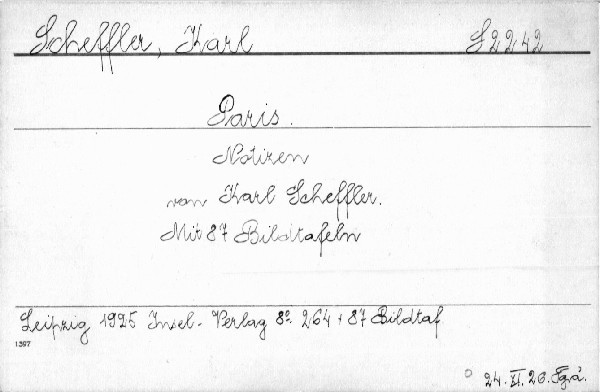 Scheffler, Karl S2242
Paris.
Notizen
von Karl Scheffler.
Mit 87 Bildtafeln
Leipzig 1925 Insel-Verlag 8º 264 + 87 Bildtaf
1397
24. XI. 26.